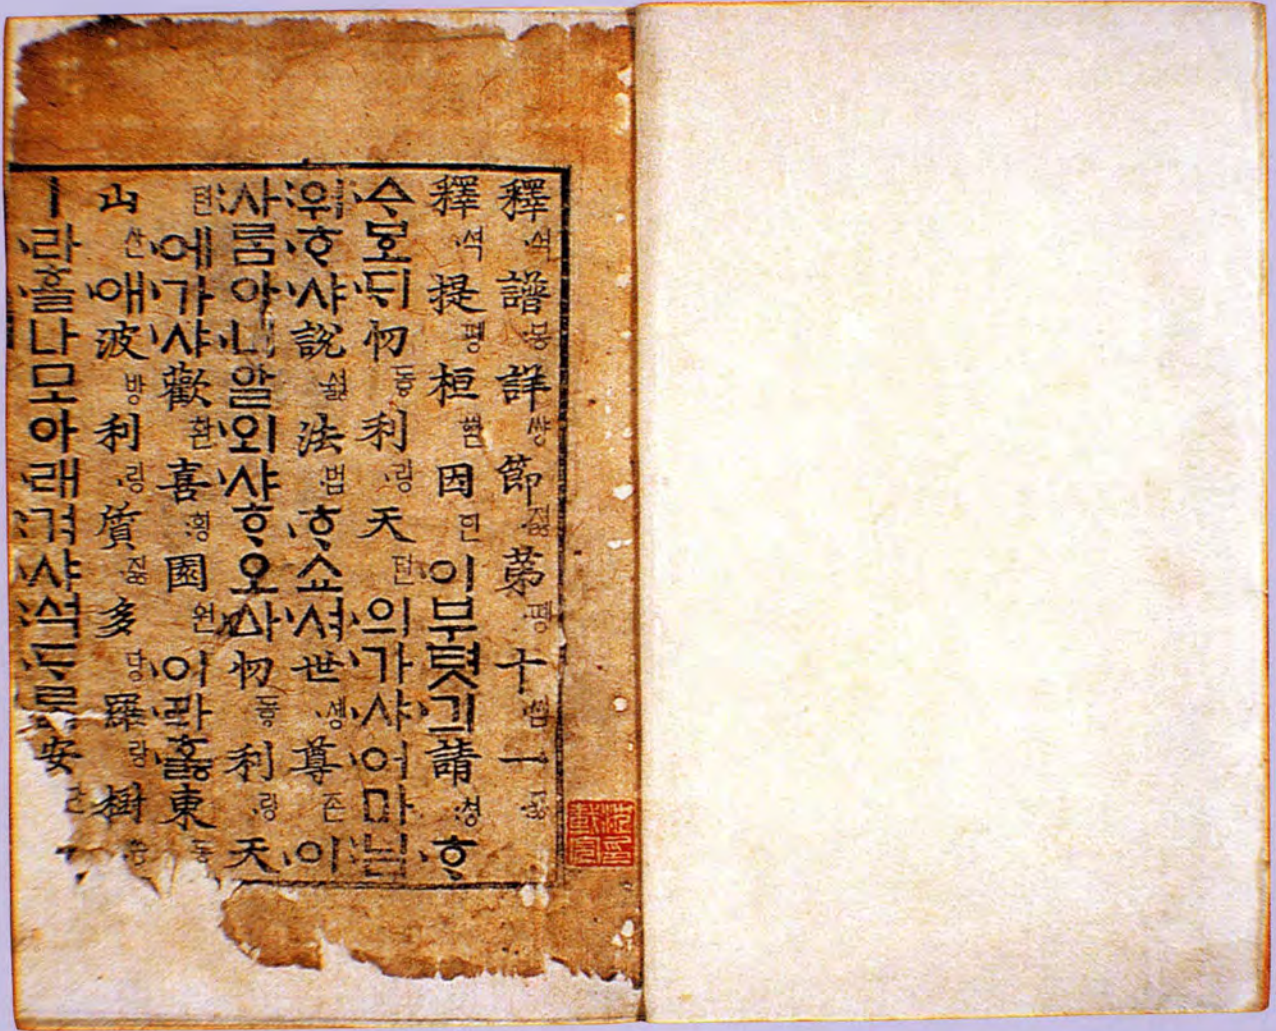 釋·셕譜:봉詳썅節·져ᇙ第·똉十·씹一·ᅙᅵᇙ
釋·셕提똉桓ᅘᅪᆫ因ᅙᅵᆫ·이부텻긔請:쳥·ᄒᆞ
:ᅀᆞᄫᅩ·ᄃᆡ忉도ᇢ利·링天텬·의·가·샤·어마:님
:위·ᄒᆞ·샤說·ᄉᆑᇙ法·법·ᄒᆞ쇼·셔世·솅尊존·이
:사ᄅᆞᆷ아·니알·외·샤ᄒᆞ오·ᅀᅡ忉도ᇢ利·링天
텬·에·가·샤歡환喜:힁園원·이·라·홇東동
山산·애波방利·링質·지ᇙ多당羅랑樹·쓩
ㅣ·라·홀나모아래·겨·샤:석·ᄃᆞᆯ安